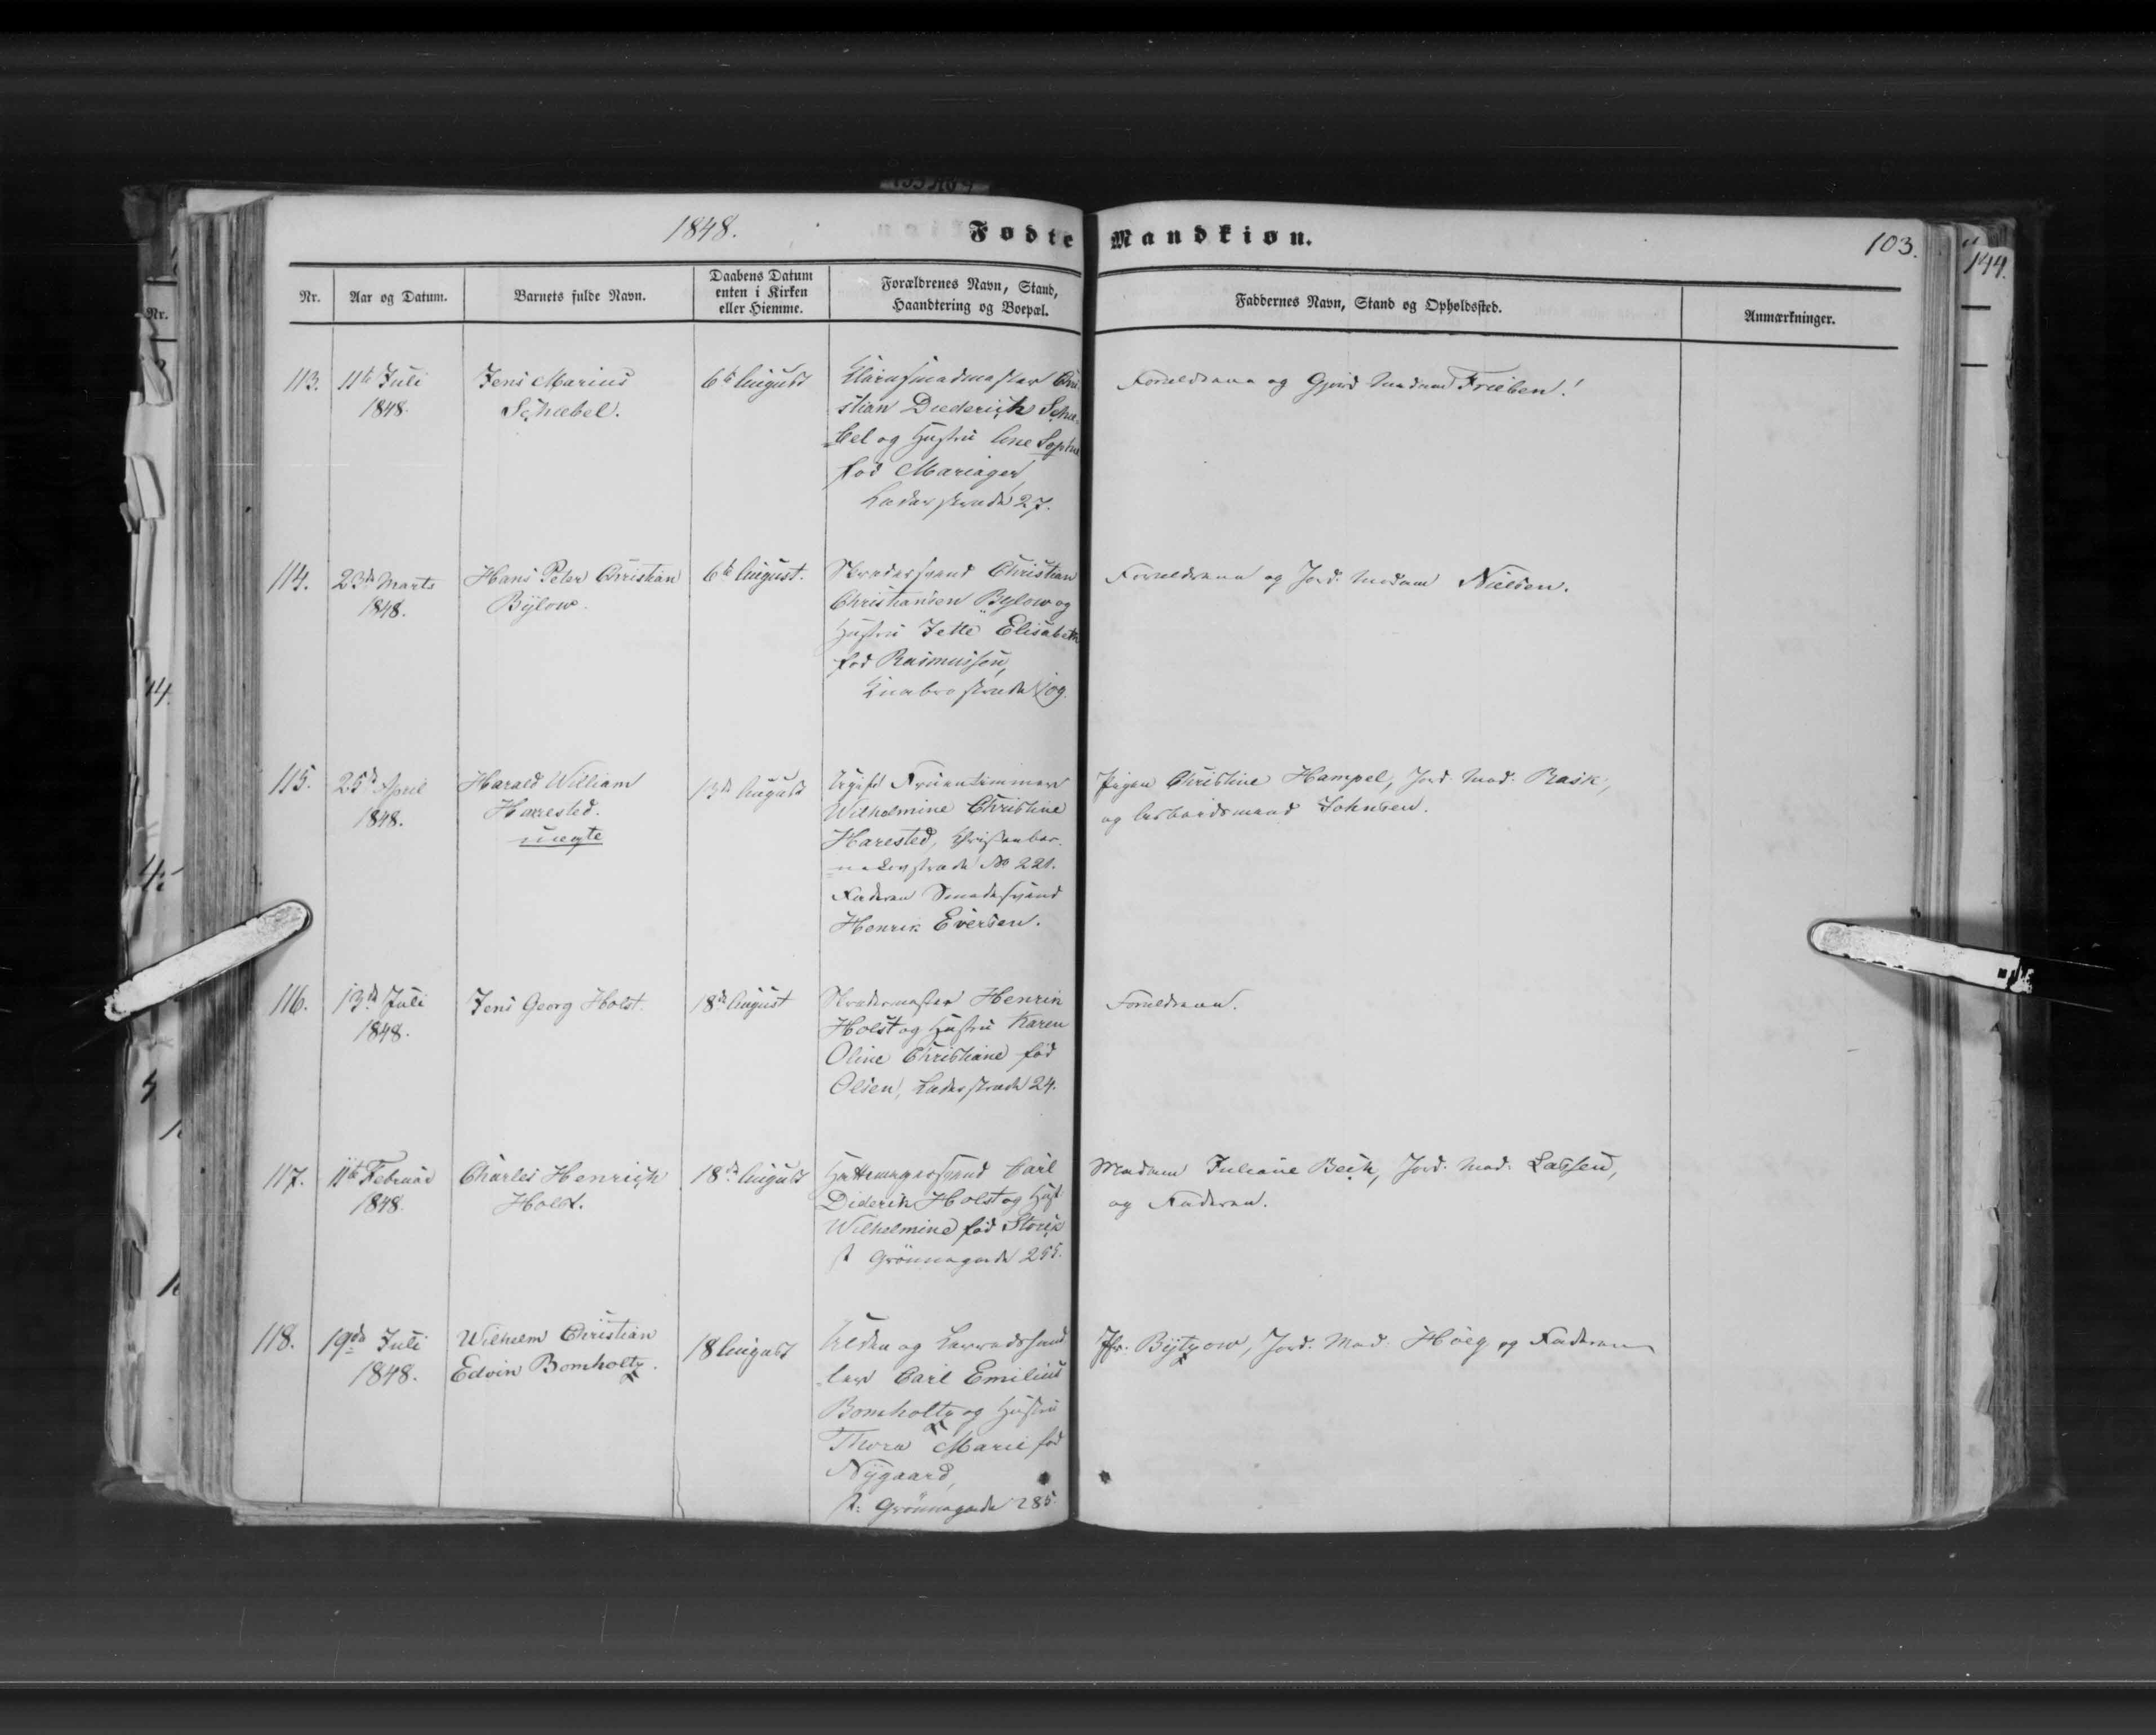 1848.
Fødte Mandkiøn.
103.
144.
Nr.
Nr.
Aar og Datum.
Barnets fulde Navn.
Daabens Datum
enten i Kirken
eller Hiemme.
Forældrenes Navn, Stand,
Haandtering og Boepæl.
Faddernes Navn, Stand og Opholdssted.
Anmærkninger.
113.
11te Juli
1848.
Jens Marius
Schæbel.
6te August
Chri-
stian Diederich Schæ-
bel og Hustru Ane Sophie
fød Mariager,
Laderstræde 27.
Forældrene og Madam Frieben!
114.
23de Marts
1848.
Hans Peter Christian
Bÿlow.
6te August.
Skrædersvend Christian
Christiansen Bylow og
Hustru Jette Elisabeth
fød Rasmussen,
Knabrostræde 109.
Forældrene og Jord. Madam Nielsen.
115.
25de April
1848.
Harald William
Harested.
uægte
13de August
Ugift Fruentimmer
Wilhelmine Christine
Harested, Christenber-
nekovstræde No 221.
Faderen Smedesvend
Henrik Eversen.
Pigen Christine Hampel, Jord. Mad. Rask,
og Arbeidsmand Johnsen.
116.
13de Juli
1848.
Jens Georg Holst.
18de August
Skrædermester Henrik
Holst og Hustru Karen
Oline Christiane fød
Olsen, Laderstræde 24.
Forældrene.
117.
11te Februar
1848.
Charles Henrich
Holst.
18de August
Hattemagersvend Carl
Diderik Holst og Hust.
Wilhelmine fød Storck
st Grönnegade 255.
Madam Juliane Beck, Jord. Mad. Lassen,
og Faderen.
118.
19de Juli
1848.
Wilhelm Christian
Edvin Bomholtz.
18 August
Ulden og Lærredshand
ler Carl Emilius
Bomholtz og Hustru
Thora Marie fød
Nÿgaard,
st. Grönnegade 285.
Jfr. Bÿtzow, Jord. Mad. Höeg og Faderen